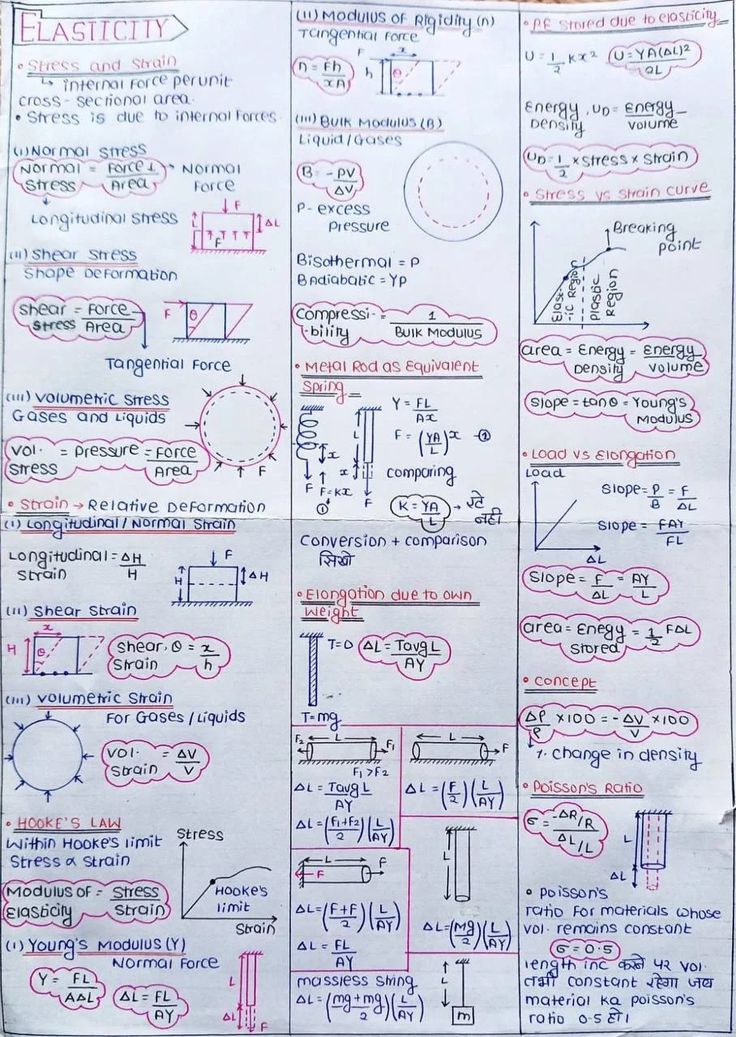 ELASTICITY
• Stress and Strain
↳ internal force per unit
cross-sectional area.
• Stress is due to internal forces.
(i) Normal Stress
Normal Stress = Force ⊥ / Area → Normal Force
↓ Longitudinal Stress
F
L
ΔL
F
(ii) Shear Stress
Shape Deformation
Shear Stress = Force / Area
F
θ
Tangential Force
(iii) Volumetric Stress
Gases and Liquids
Vol. Stress = Pressure = Force / Area
F
• Strain → Relative Deformation
(i) Longitudinal / Normal Strain
Longitudinal Strain = ΔH / H
F
H
ΔH
(ii) Shear Strain
x
H
θ
Shear Strain, θ = x / h
(iii) Volumetric Strain
For Gases / Liquids
Vol. Strain = ΔV / V
• HOOKE'S LAW
Within Hooke's limit
Stress α Strain
Modulus of Elasticity = Stress / Strain
Stress
Hooke's limit
Strain
(i) Young's Modulus (Y)
Normal Force
Y = FL / AΔL
ΔL = FL / AY
L
ΔL
F
(ii) Modulus of Rigidity (η)
Tangential Force
η = Fh / xA
F
x
h
θ
(iii) Bulk Modulus (B)
Liquid / Gases
B = -PV / ΔV
P - excess
Pressure
Bisothermal = P
Badiabatic = γP
Compressi-bility = 1 / Bulk Modulus
• Metal Rod as Equivalent
Spring
x
F
F = Kx
①
L
x
F
Y = FL / Ax
F = (YA / L) x - ②
comparing
K = YA / L → रटे नही
conversion + comparison
सिखो
• Elongation due to own
Weight
T = 0
ΔL = Tavg L / AY
T = mg
F₂
L
F₁
F₁ > F₂
ΔL = Tavg L / AY
ΔL = (F₁+F₂ / 2) (L / AY)
L
F
ΔL = (F / 2) (L / AY)
L
F
F
ΔL = (F+F / 2) (L / AY)
ΔL = FL / AY
L
ΔL = (Mg / 2) (L / AY)
massless string
ΔL = (mg+mg / 2) (L / AY)
L
m
• P.E stored due to elasticity
U = 1/2 Kx²
U = YA(ΔL)² / 2L
Energy Density, UD = Energy / Volume
UD = 1/2 × Stress × Strain
• Stress vs Strain Curve
Breaking
point
Elast-ic Region
Plastic Region
area = Energy Density = Energy / Volume
Slope = tan θ = Young's Modulus
• Load vs Elongation
Load
ΔL
Slope = P / B = F / ΔL
Slope = FAY / FL
Slope = F / ΔL = AY / L
area = Enegy Stored = 1/2 FΔL
• Concept
Δρ / ρ × 100 = - ΔV / V × 100
↳ %. change in density
• Poisson's Ratio
σ = -ΔR/R / ΔL/L
L
ΔL
• Poisson's
ratio for materials whose
vol. remains constant
σ = 0.5
length inc करने पर vol.
तभी constant रहेगा जब
material ka poisson's
ratio 0.5 हो।